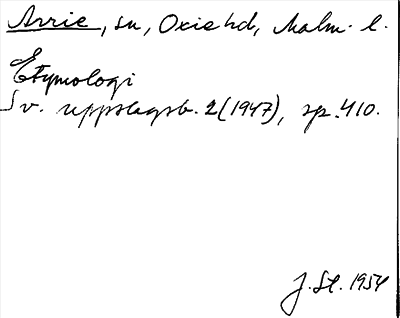 Arrie, sn, Oxie hd, Malm. l.
Etymologi
Sv. uppslagsb. 2 (1947), sp. 410.
J. St. 1954